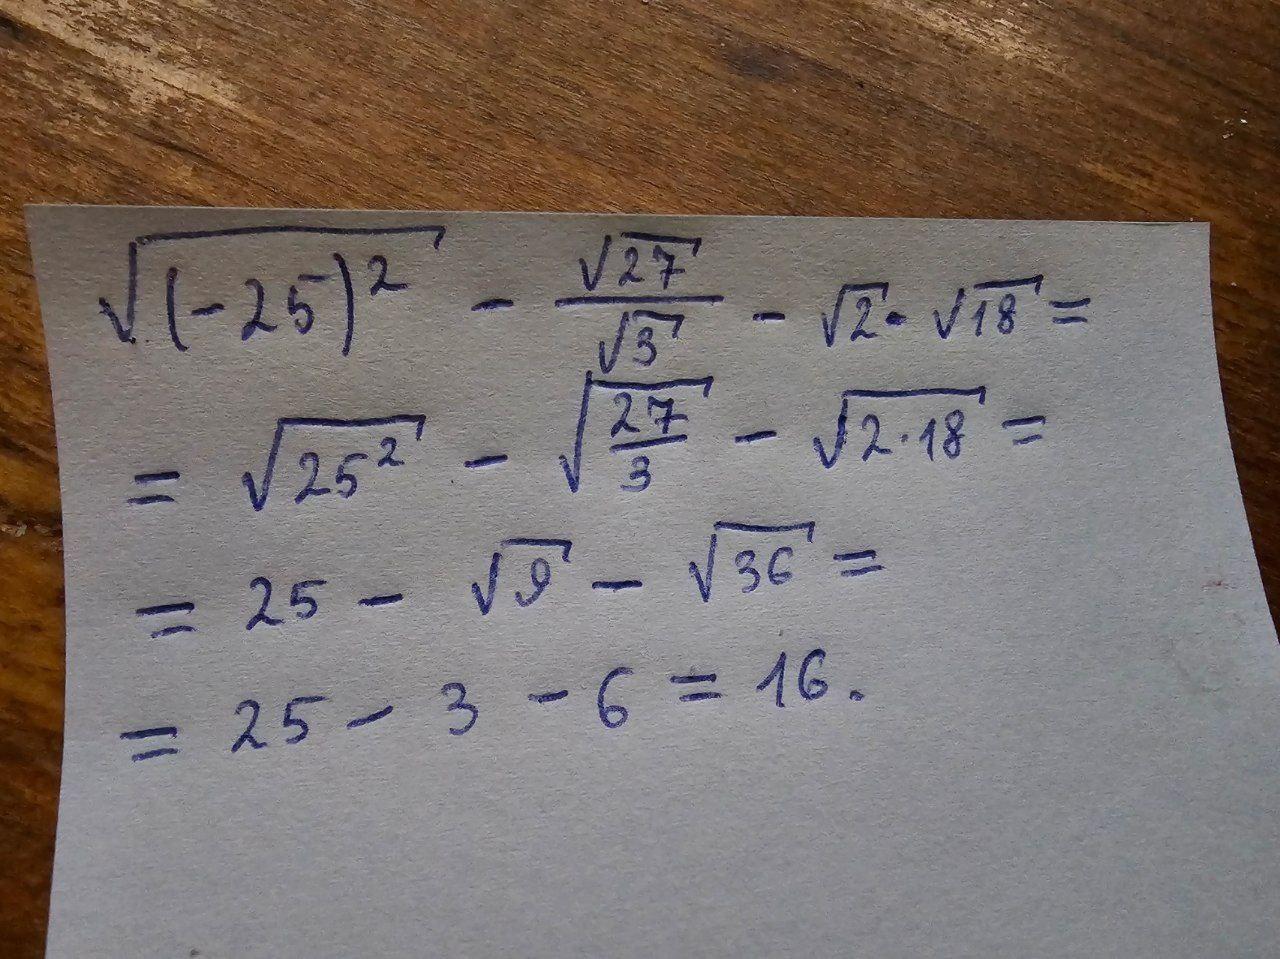 √(-25)² - √27/√3 - √2 · √18 =
= √25² - √(27/3) - √(2·18) =
= 25 - √9 - √36 =
= 25 - 3 - 6 = 16.